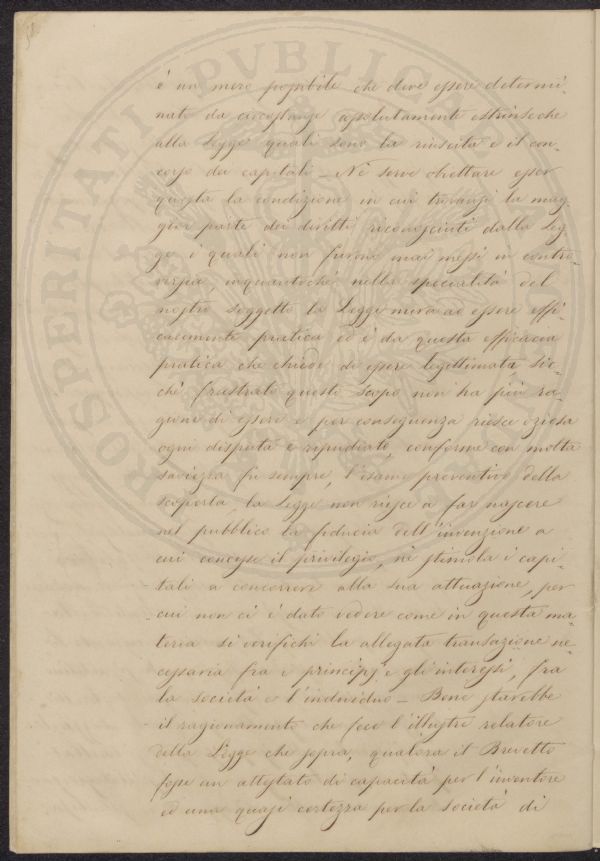 è un mero possibile che deve essere determi-
nato da circostanze assolutamente estrinseche
alla Legge quali sono la riuscita e il con-
corso dei capitali – Nè serve obiettare esser
questa la condizione in cui trovansi la mag-
gior parte dei diritti riconosciuti dalla Leg-
ge i quali non furono mai messi in contro-
versia, inquantochè nella specialità del
nostro soggetto la Legge mira ad essere effi-
cacemente pratica ed è da questa efficacia
pratica che chiede di essere legittimata sic-
chè frustrato questo scopo non ha più ra-
gione di essere e per conseguenza riesce oziosa
ogni disputa e ripudiato, conforme con molta
saviezza fu sempre, l'esame preventivo della
scoperta, la Legge non riesce a far nascere
nel pubblico la fiducia dell'invenzione a
cui concesse il privilegio, nè stimola i capi-
tali a concorrere alla sua attuazione, per
cui non ci è dato vedere come in questa ma-
teria si verifichi la allegata transazione ne-
cessaria fra i principj e gli interessi, fra
la società e l'individuo – Bene starebbe
il ragionamento che fece l'illustre relatore
della Legge che sopra, qualora il Brevetto
fosse un attestato di capacità per l'inventore
ed una quasi certezza per la società di
PROSPERITATI PVBLICAE